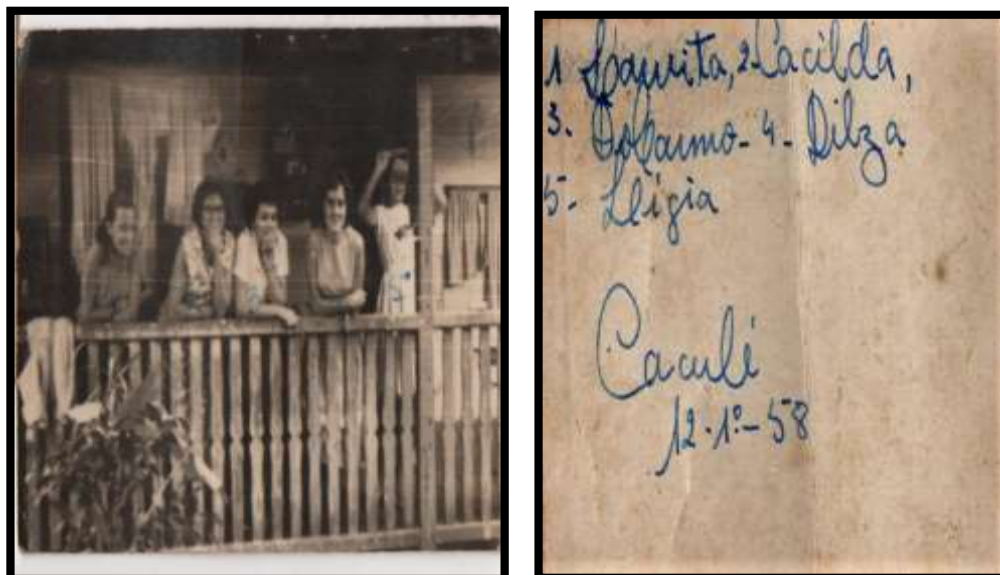 1 Laurita, 2-Cacilda,
3. DoCarmo - 4 - Dilza
5 - Ligia
Caculé
12-1º-58